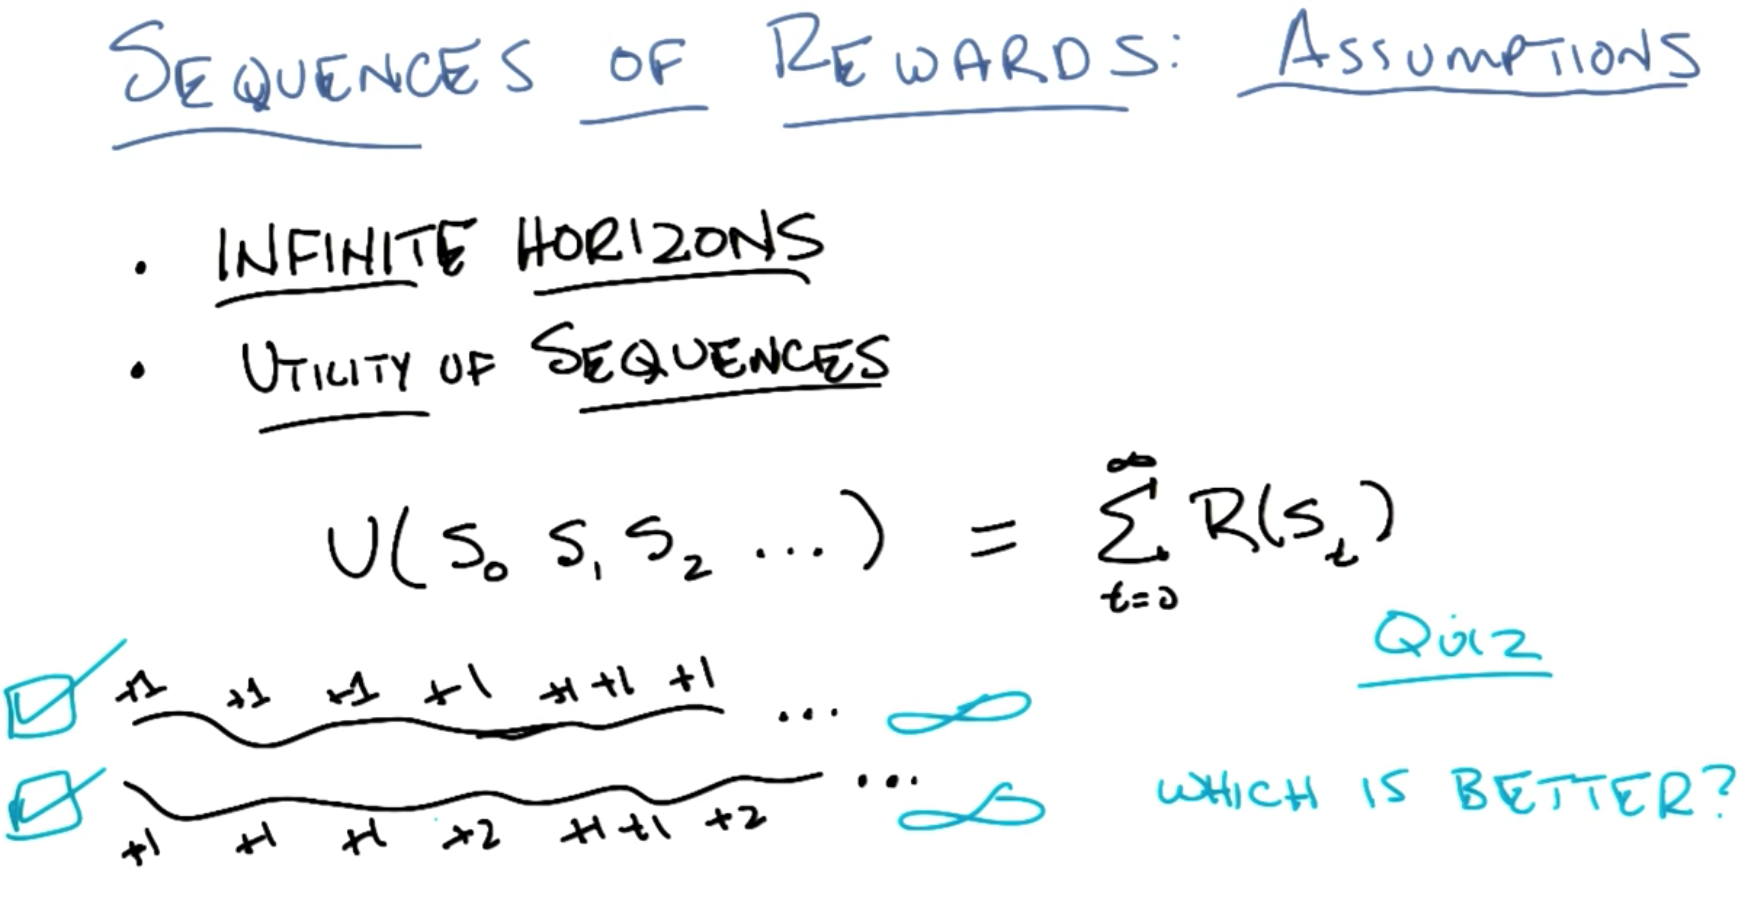 SEQUENCES OF REWARDS: ASSUMPTIONS
• INFINITE HORIZONS
• UTILITY OF SEQUENCES
U( S₀ S₁ S₂ ...) = ∑ₜ₌₀^∞ R(Sₜ)
QUIZ
+1 +1 +1 +1 +1 +1 +1 ... ∞
WHICH IS BETTER?
... ∞
+1 +1 +1 +2 +1 +1 +2